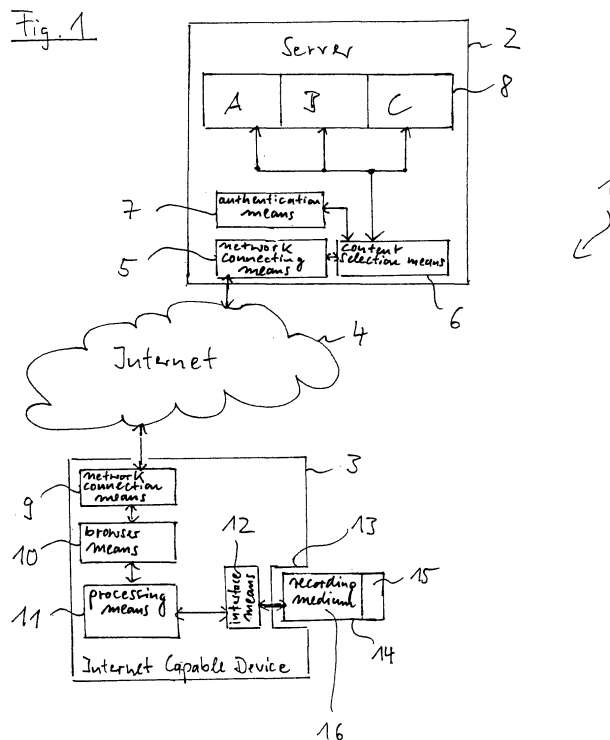 Fig. 1
Server
2
A B C
8
1
7
authentication
means
5
network
connecting
means
content
selection means
6
Internet
4
3
network
connection
means
9
10
browser
means
12
13
11
processing
means
interface
means
recording
medium
15
14
Internet Capable Device
16